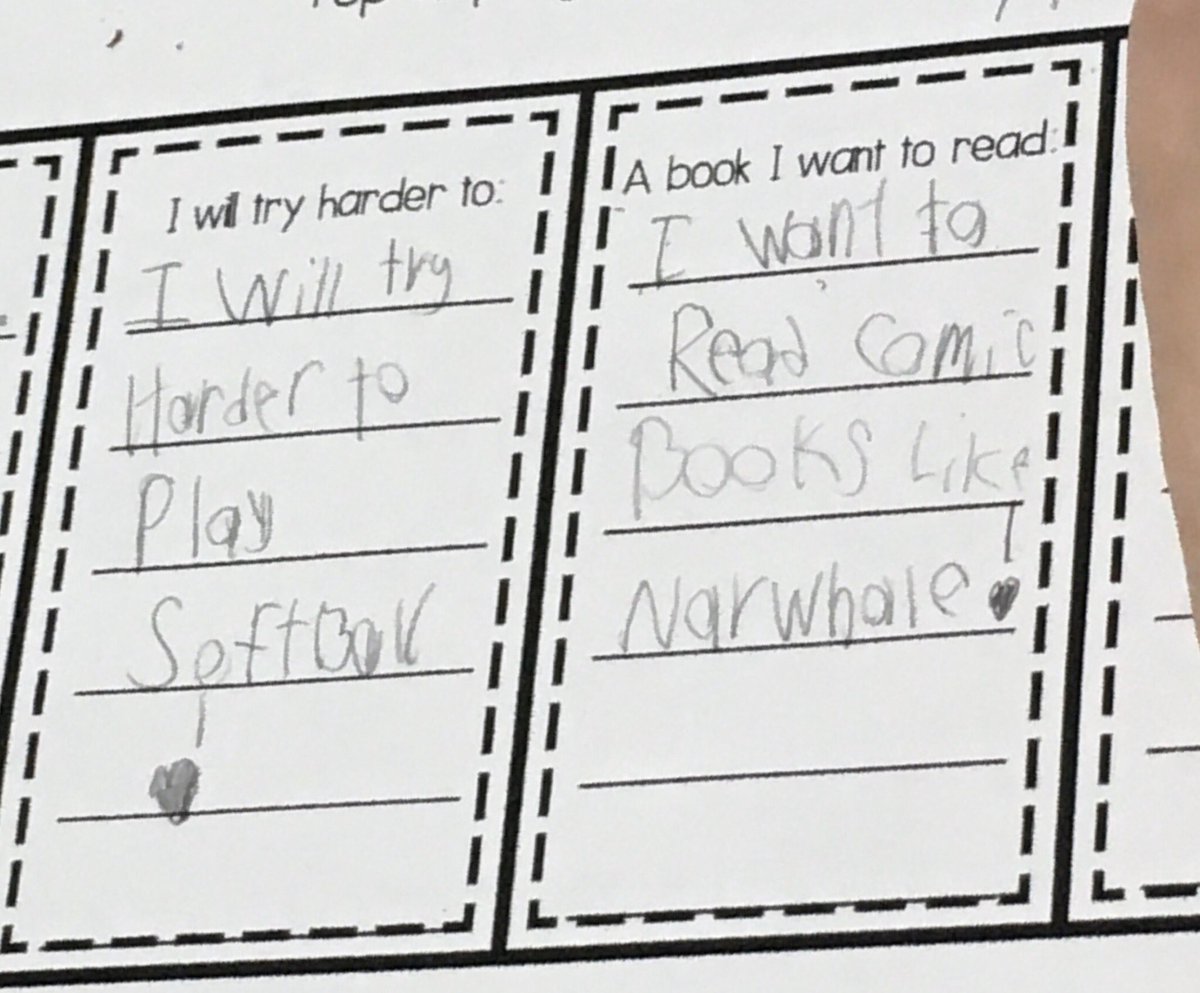 I will try harder to:
I Will try
Harder to
Play
SoftBall
A book I want to read:
I want to
Read Comic
Books Like
Narwhale!